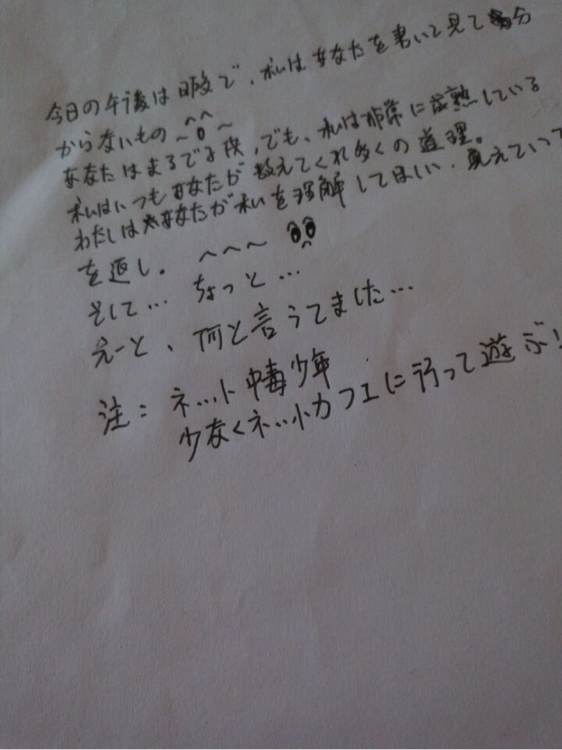 今日の午後は暇で、私はあなたを書いて見て分
からないもの
あなたはまるで子供、でも、私は非常に成熟している
私はいつもあなたが教えてくれ多くの道理。
わたしはあなたが私を理解してほしい、覚えていて
を返し。 へへへ
そして… ちょっと…
えーと、何と言うてました…
注：ネット中毒少年
少なくネットカフェに行って遊ぶ！